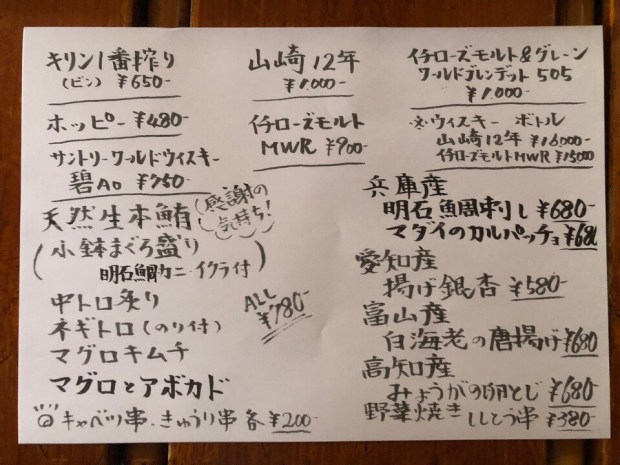 キリン一番搾り
(ビン) ¥650-
ホッピー ¥480-
サントリーワールドウイスキー
碧Ao ¥750-
山崎12年
¥1.000-
イチローズモルト
MWR ¥900-
イチローズモルト&グレーン
ワールドブレンデット 505
¥1.000-
※ウィスキー ボトル
山崎12年 ¥16,000-
イチローズモルトMWR ¥15000
天然生本鮪
感謝の
気持ち!
(小鉢まぐろ盛り
明石鯛カニ・イクラ付)
中トロ炙り
ネギトロ(のり付)
マグロキムチ
マグロとアボカド
ALL
¥780-
キャベツ串・きゅうり串 各¥200-
兵庫産
明石鯛刺し ¥680-
マダイのカルパッチョ ¥680
愛知産
揚げ銀杏 ¥580-
富山産
白海老の唐揚げ ¥680
高知産
みょうがの卵とじ ¥680-
野菜焼き ししとう串 ¥380-